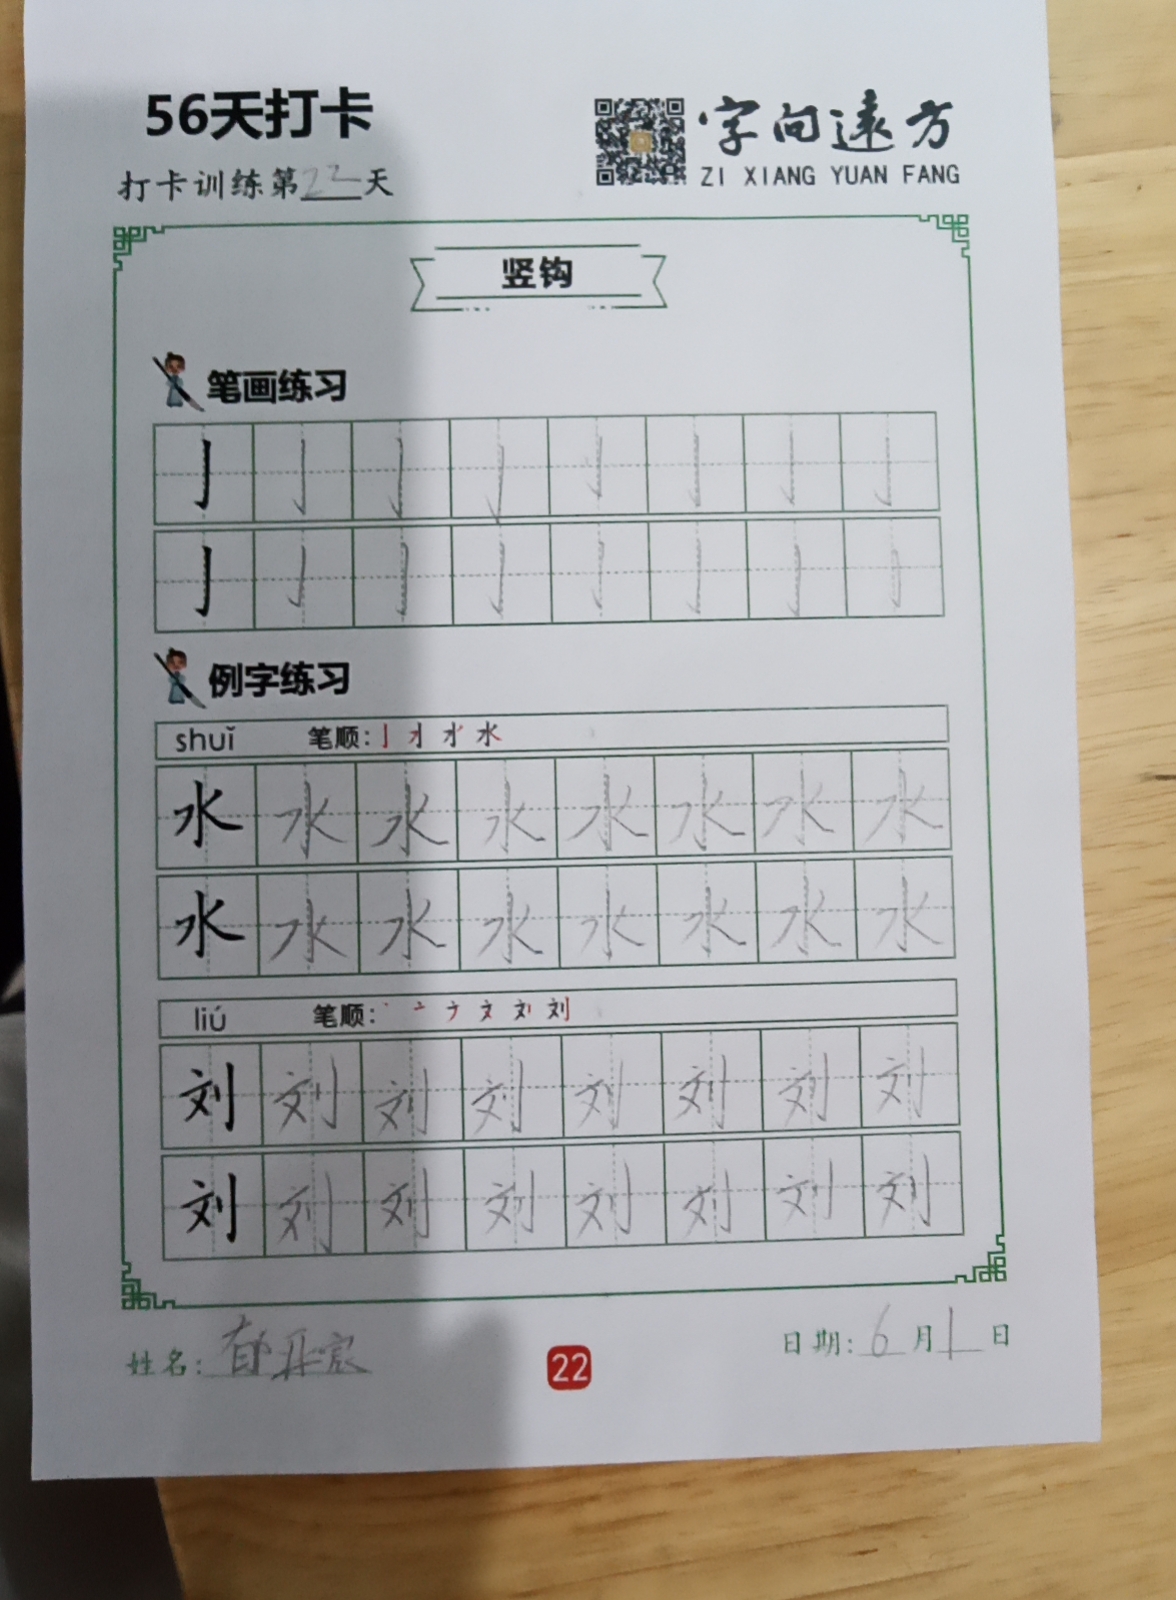 56天打卡
字向远方
打卡训练第22天
ZI XIANG YUAN FANG
竖钩
笔画练习
亅 亅 亅 亅 亅 亅 亅 亅
亅 亅 亅 亅 亅 亅 亅 亅
例字练习
shuǐ 笔顺: 水
水 水 水 水 水 水 水 水
水 水 水 水 水 水 水 水
liú 笔顺: 文 刘
刘 刘 刘 刘 刘 刘 刘 刘
刘 刘 刘 刘 刘 刘 刘 刘
姓名:
22
日期: 6月1日